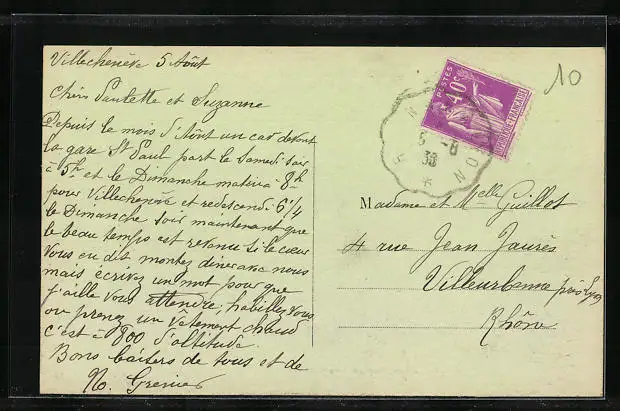 Villechenève 5 Août
Chère Paulette et Suzanne
Depuis le mois d'Août un car devant
la gare St Paul part le samedi soir
à 5h et le Dimanche matin à 8h
pour Villechenève et redescend à 6 1/4
le Dimanche soir maintenant que
le beau temps est revenu si le cœur
vous en dit montez diner avec nous
mais écrivez un mot pour que
j'aille vous attendre, habillez vous
ou prenez un vêtement chaud
c'est à 800 d'altitude.
Bons baisers de tous et de
No. Grenier
10
POSTES
40c
RÉPUBLIQUE FRANÇAISE
5 -8
38
Madame et Melle Guillot
4 rue Jean Jaurès
Villeurbanne près Lyon
Rhône